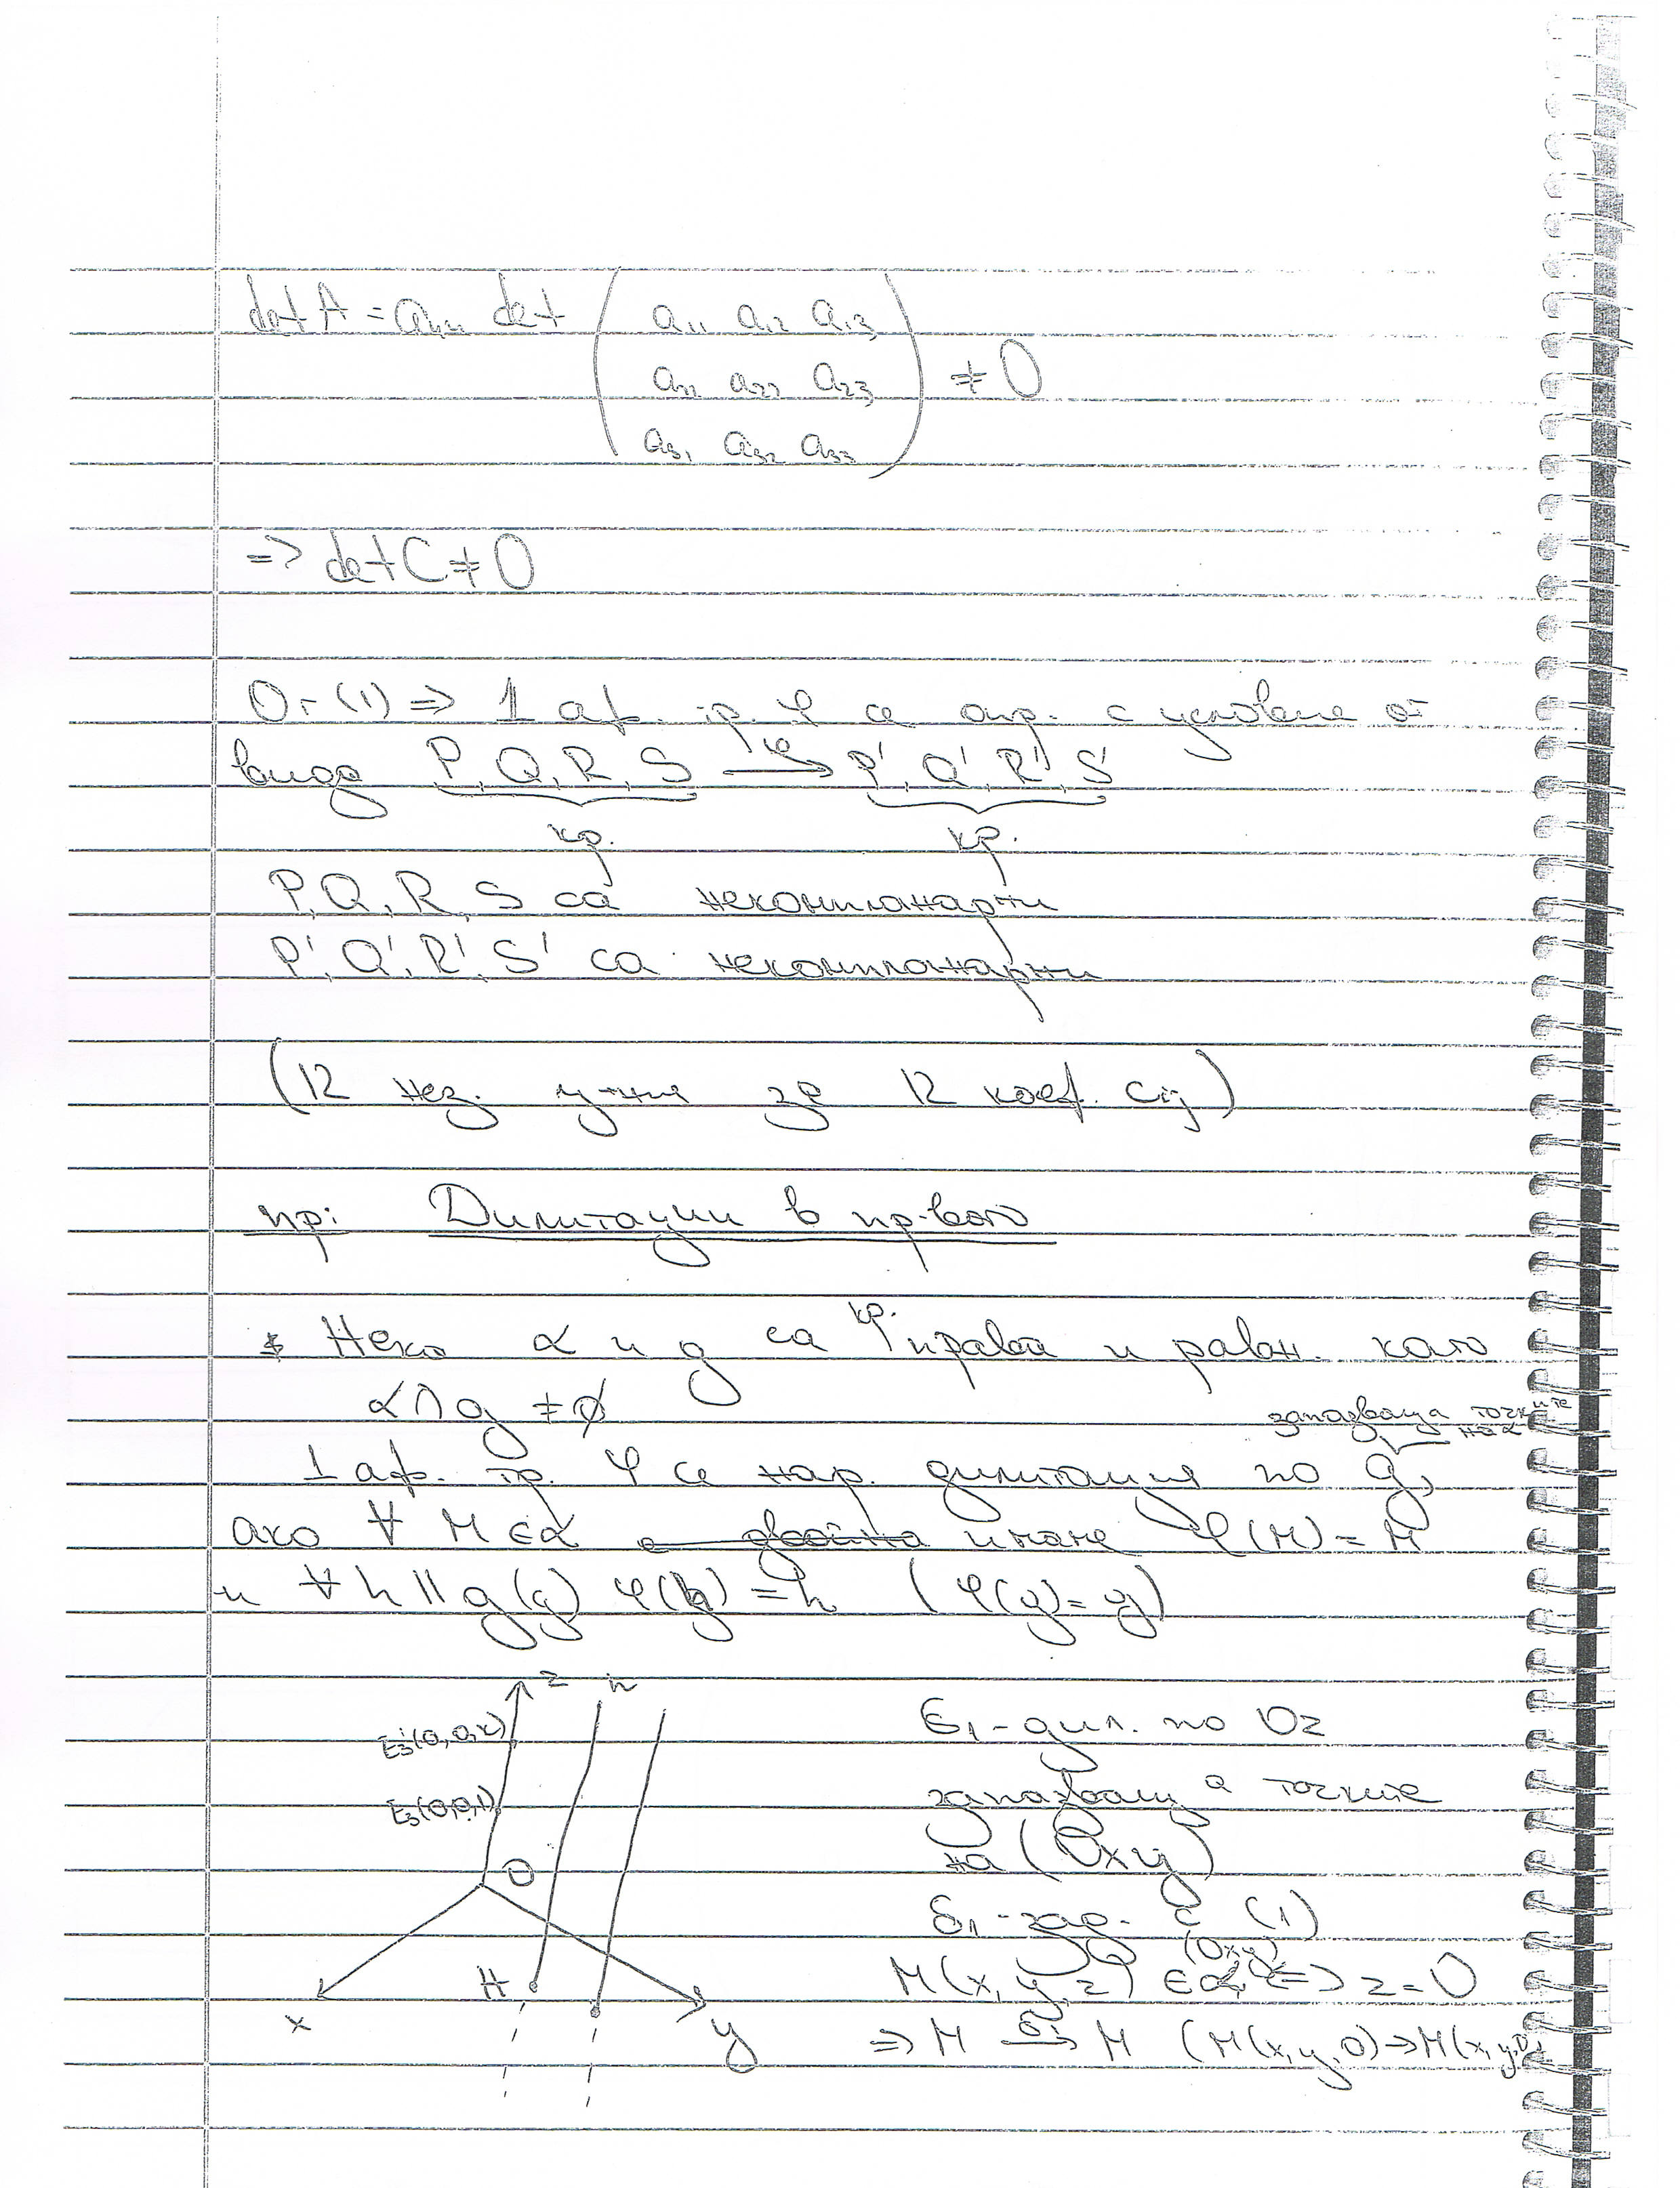 det A = a₄₄ det ( a₁₁ a₁₂ a₁₃
a₂₁ a₂₂ a₂₃ ) ≠ 0
a₃₁ a₃₂ a₃₃
=> det C ≠ 0
От (1) => 1 аф. тр. φ се опр. с условие от
вида P, Q, R, S —φ→ P', Q', R', S'
кр. кр.
P, Q, R, S са некомпланарни
P', Q', R', S' са некомпланарни
(12 нез. у-ния за 12 коеф. cij)
пр: Дилитации в пр-вото
* Нека α и g са кр. права и равн. като
α ∩ g ≠ ∅
запазваща точките на α
1 аф. тр. φ се нар. дилитация по g,
ако ∀ M ∈ α е двойна имаме φ(M) = M
и ∀ h || g (g) φ(h) = h (φ(g) = g)
z h
E₃'(0,0,k)
E₃(0,0,1)
O
H
x
y
δ₁ - дил. по Oz
запазваща точките
на (Oxy)
δ₁ - зад. с (1)
(Oxy)
M(x, y, z) ∈ α <=> z = 0
=> M —δ₁→ M (M(x, y, 0) → M(x, y, 0)